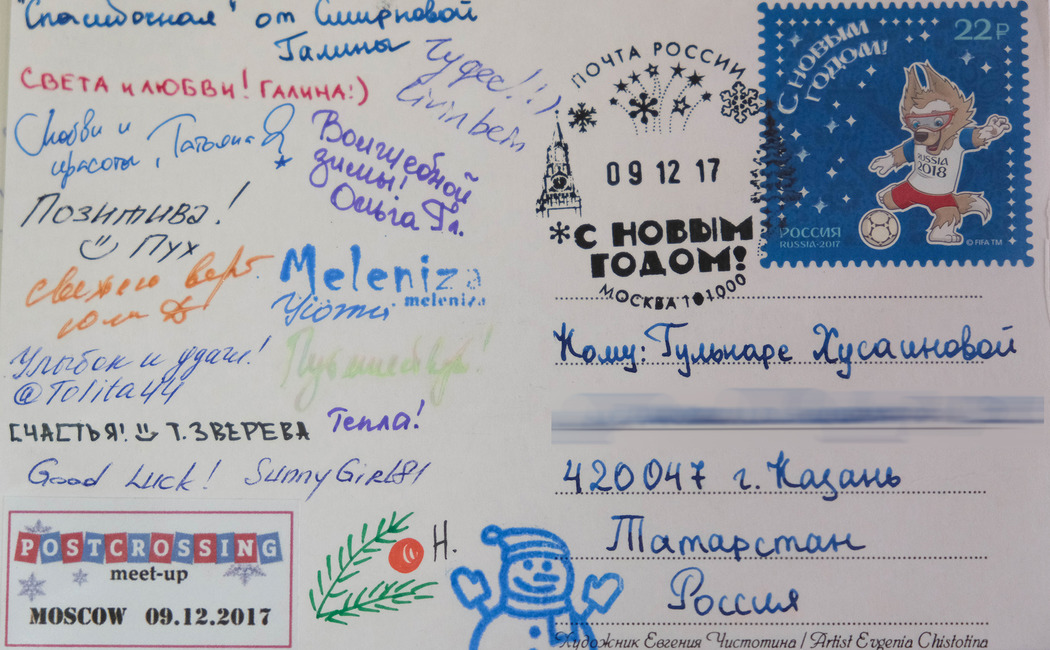 "Спасибочная" от Смирновой
Галины
СВЕТА И ЛЮБВИ! ГАЛИНА:)
Чудес!:)
Любви и
красоты, Татьяна
Волшебной
зимы!
Ольга Гл.
ПОЗИТИВА!
Пух
свежего
юли
Meleniza
meleniza
Улыбок и удачи!
@Tolita44
Путешествуй!
СЧАСТЬЯ! Т. ЗВЕРЕВА
Тепла!
Good Luck! SunnyGirl81
POSTCROSSING
meet-up
MOSCOW 09.12.2017
Н.
ПОЧТА РОССИИ
09 12 17
*С НОВЫМ
ГОДОМ!
МОСКВА 101000
С НОВЫМ
ГОДОМ!
22₽
RUSSIA
2018
РОССИЯ
RUSSIA·2017
© FIFA TM
Кому: Гульнаре Хусаиновой
420047 г. Казань
Татарстан
Россия
Художник Евгения Чистотина / Artist Evgenia Chistotina